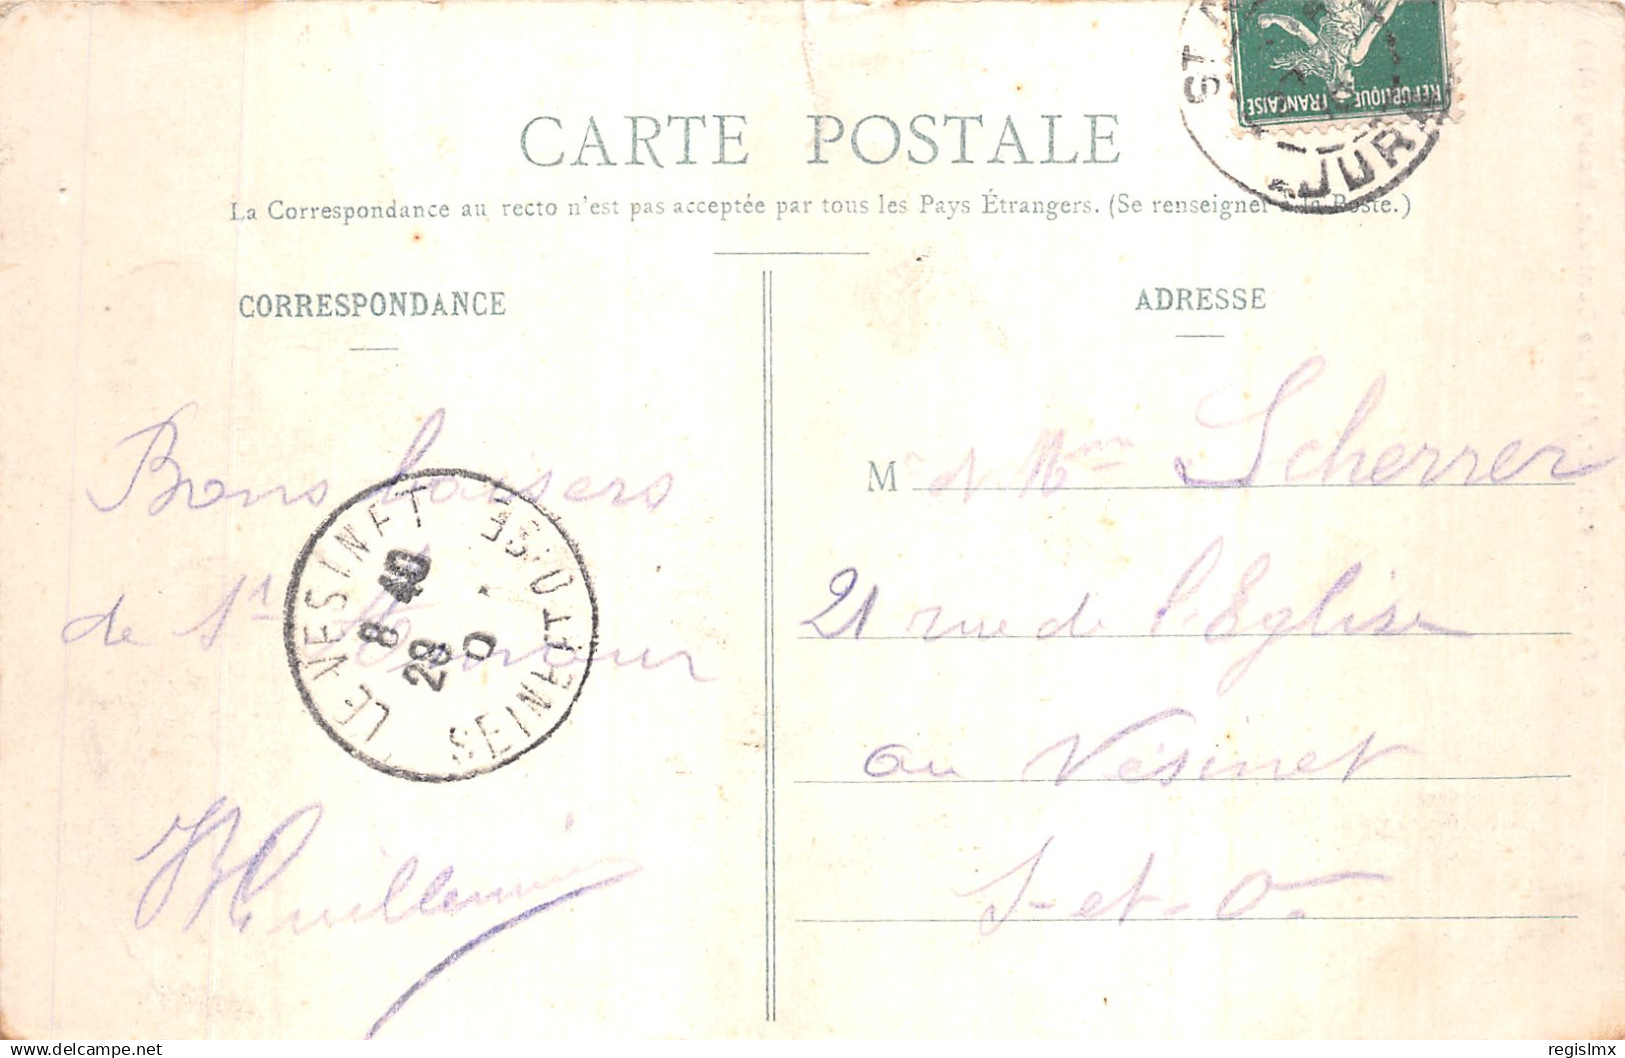 CARTE POSTALE
La Correspondance au recto n'est pas acceptée par tous les Pays Étrangers. (Se renseigner à la Poste.)
CORRESPONDANCE
ADRESSE
Bons baisers
de St Amour
Vuillemin
M et Mme Scherrer
21 rue de l'Eglise
au Vésinet
S-et-O.
LE VESINET
SEINE ET OISE
8 40
28
REPUBLIQUE FRANÇAISE
ST A
JURA
regislmx
www.delcampe.net